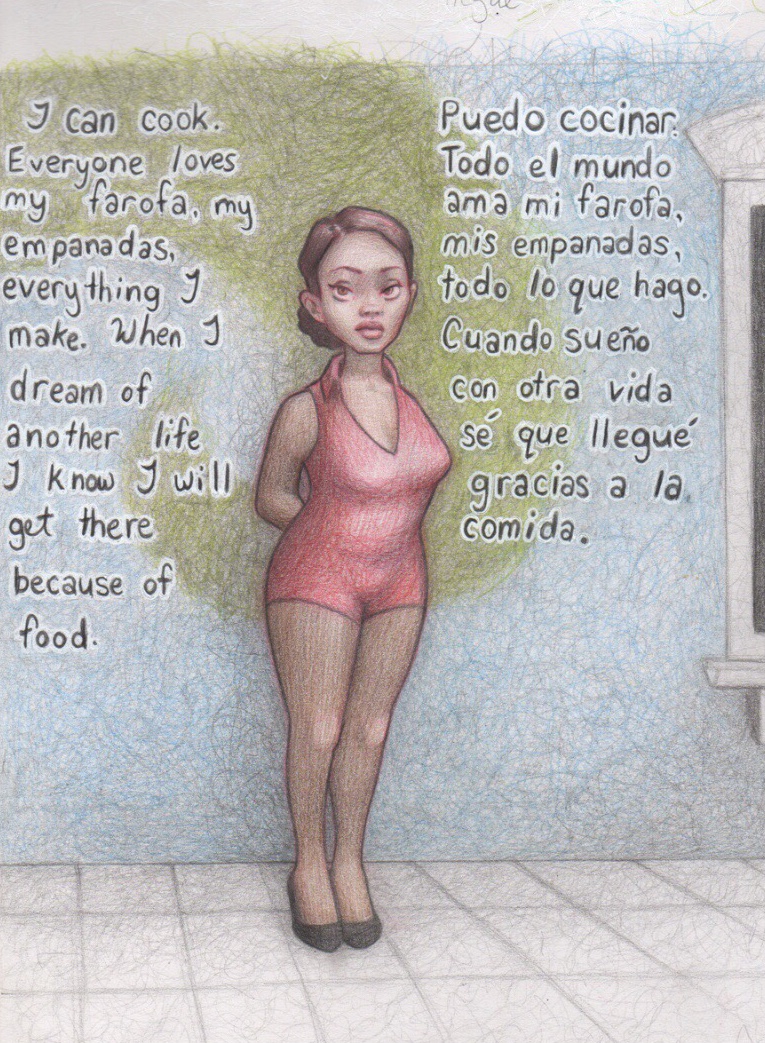 I can cook.
Everyone loves
my farofa, my
empanadas,
everything I
make. When I
dream of
another life
I know I will
get there
because of
food.
Puedo cocinar.
Todo el mundo
ama mi farofa,
mis empanadas,
todo lo que hago.
Cuando sueño
con otra vida
sé que llegué
gracias a la
comida.